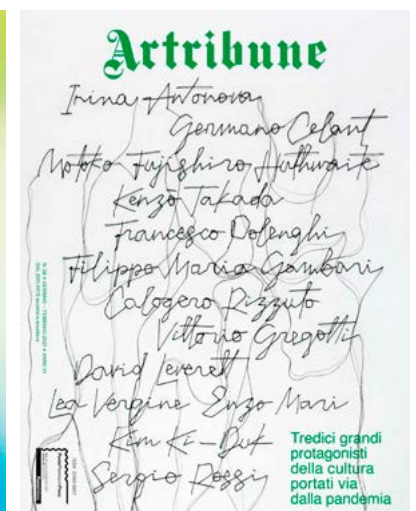 Artribune
Irina Antonova
Germano Celant
Motoko Fujishiro Huthwaite
Kenzō Takada
Francesco Dolenghi
Filippo Maria Gambari
Calogero Rizzuto
Vittorio Gregotti
David Leverett
Lea Vergine Enzo Mari
Kim Ki-Duk
Sergio Rossi
Tredici grandi
protagonisti
della cultura
portati via
dalla pandemia